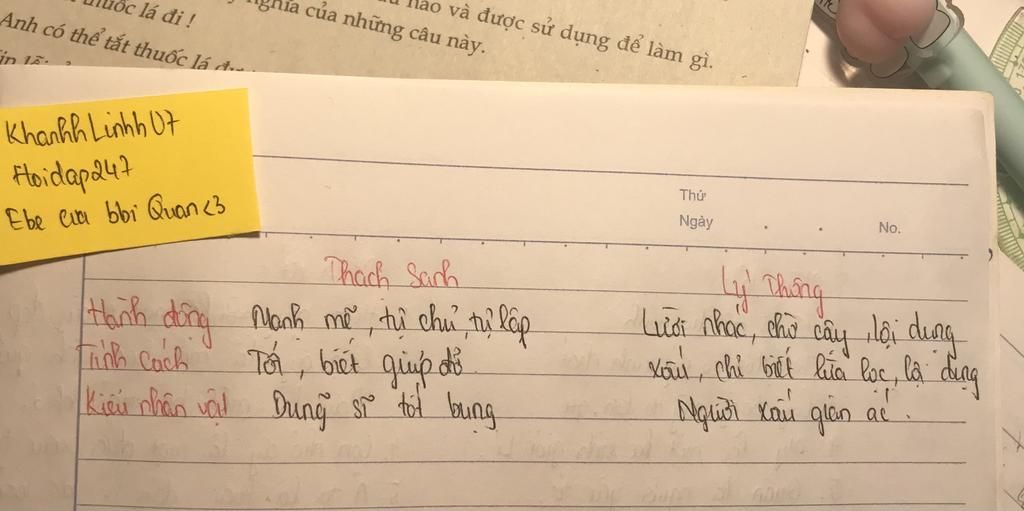 thuốc lá đi !
nghĩa của những câu này.
nào và được sử dụng để làm gì.
Anh có thể tắt thuốc lá
KhanhhLinhh07
Hoidap247
Ebe cưa bbi Quan<3
Thứ
Ngày
No.
Thạch Sanh Lý Thông
Hành động Mạnh mẽ, tự chủ, tự lập Lười nhác, chờ cây, lợi dụng
Tính cách Tốt, biết giúp đỡ Xấu, chỉ biết lừa lọc, lợi dụng
Kiểu nhân vật Dũng sĩ tốt bụng Người xấu gian ác.